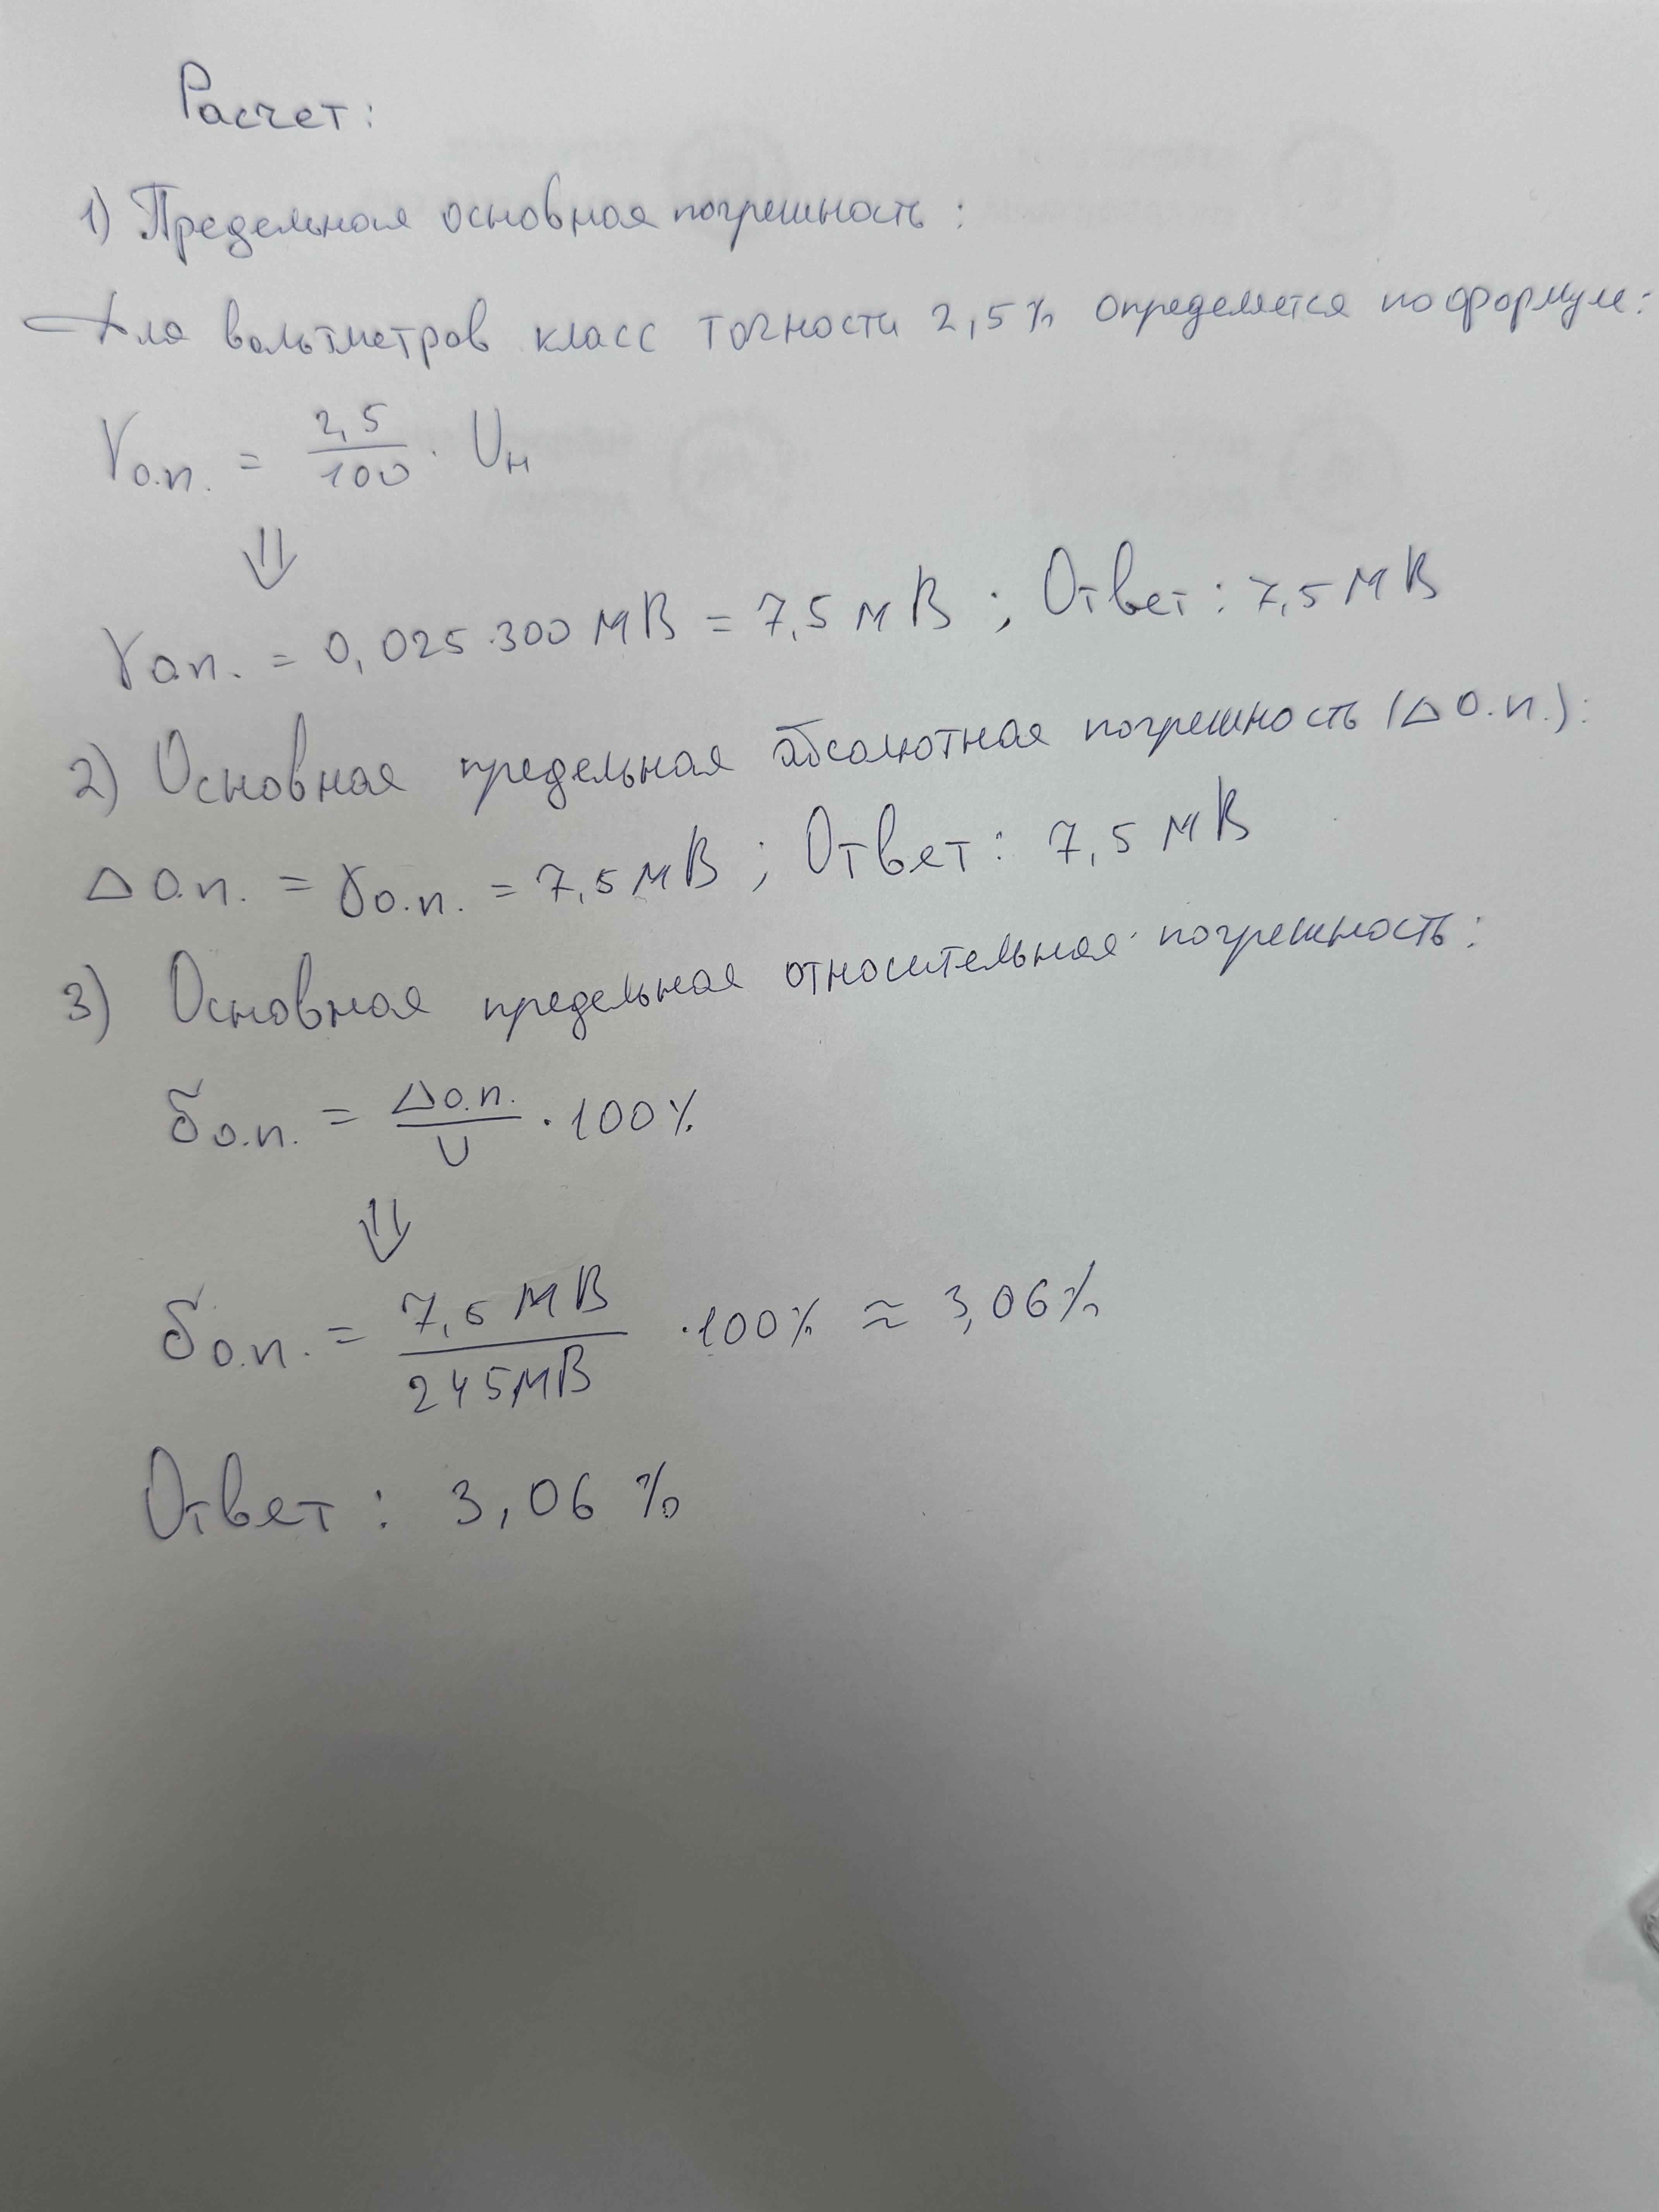 Расчет:
1) Предельная основная погрешность:
Для вольтметров класс точности 2,5% определяется по формуле:
γо.п. = 2,5/100 · Uн
⇓
γо.п. = 0,025·300 мВ = 7,5 мВ ; Ответ: 7,5 мВ
2) Основная предельная абсолютная погрешность (Δо.п.):
Δо.п. = γо.п. = 7,5 мВ ; Ответ: 7,5 мВ
3) Основная предельная относительная погрешность:
δо.п. = Δо.п./U · 100%
⇓
δо.п. = 7,5 мВ/245 мВ ·100% ≈ 3,06%
Ответ: 3,06 %